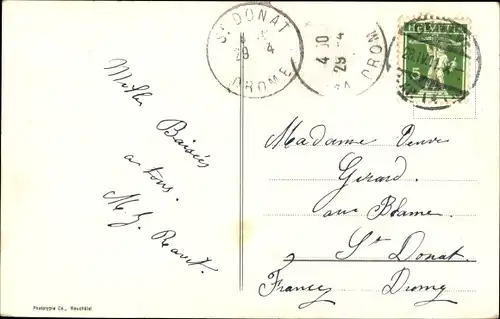 St DONAT
29 4
DROME
4 30
29-4
DROM
HELVETIA
5
Mille
Baisers
a tous.
Madame Veuve
Gerard.
aux Blame
St Donat.
France Drome
Phototypie Co., Neuchâtel